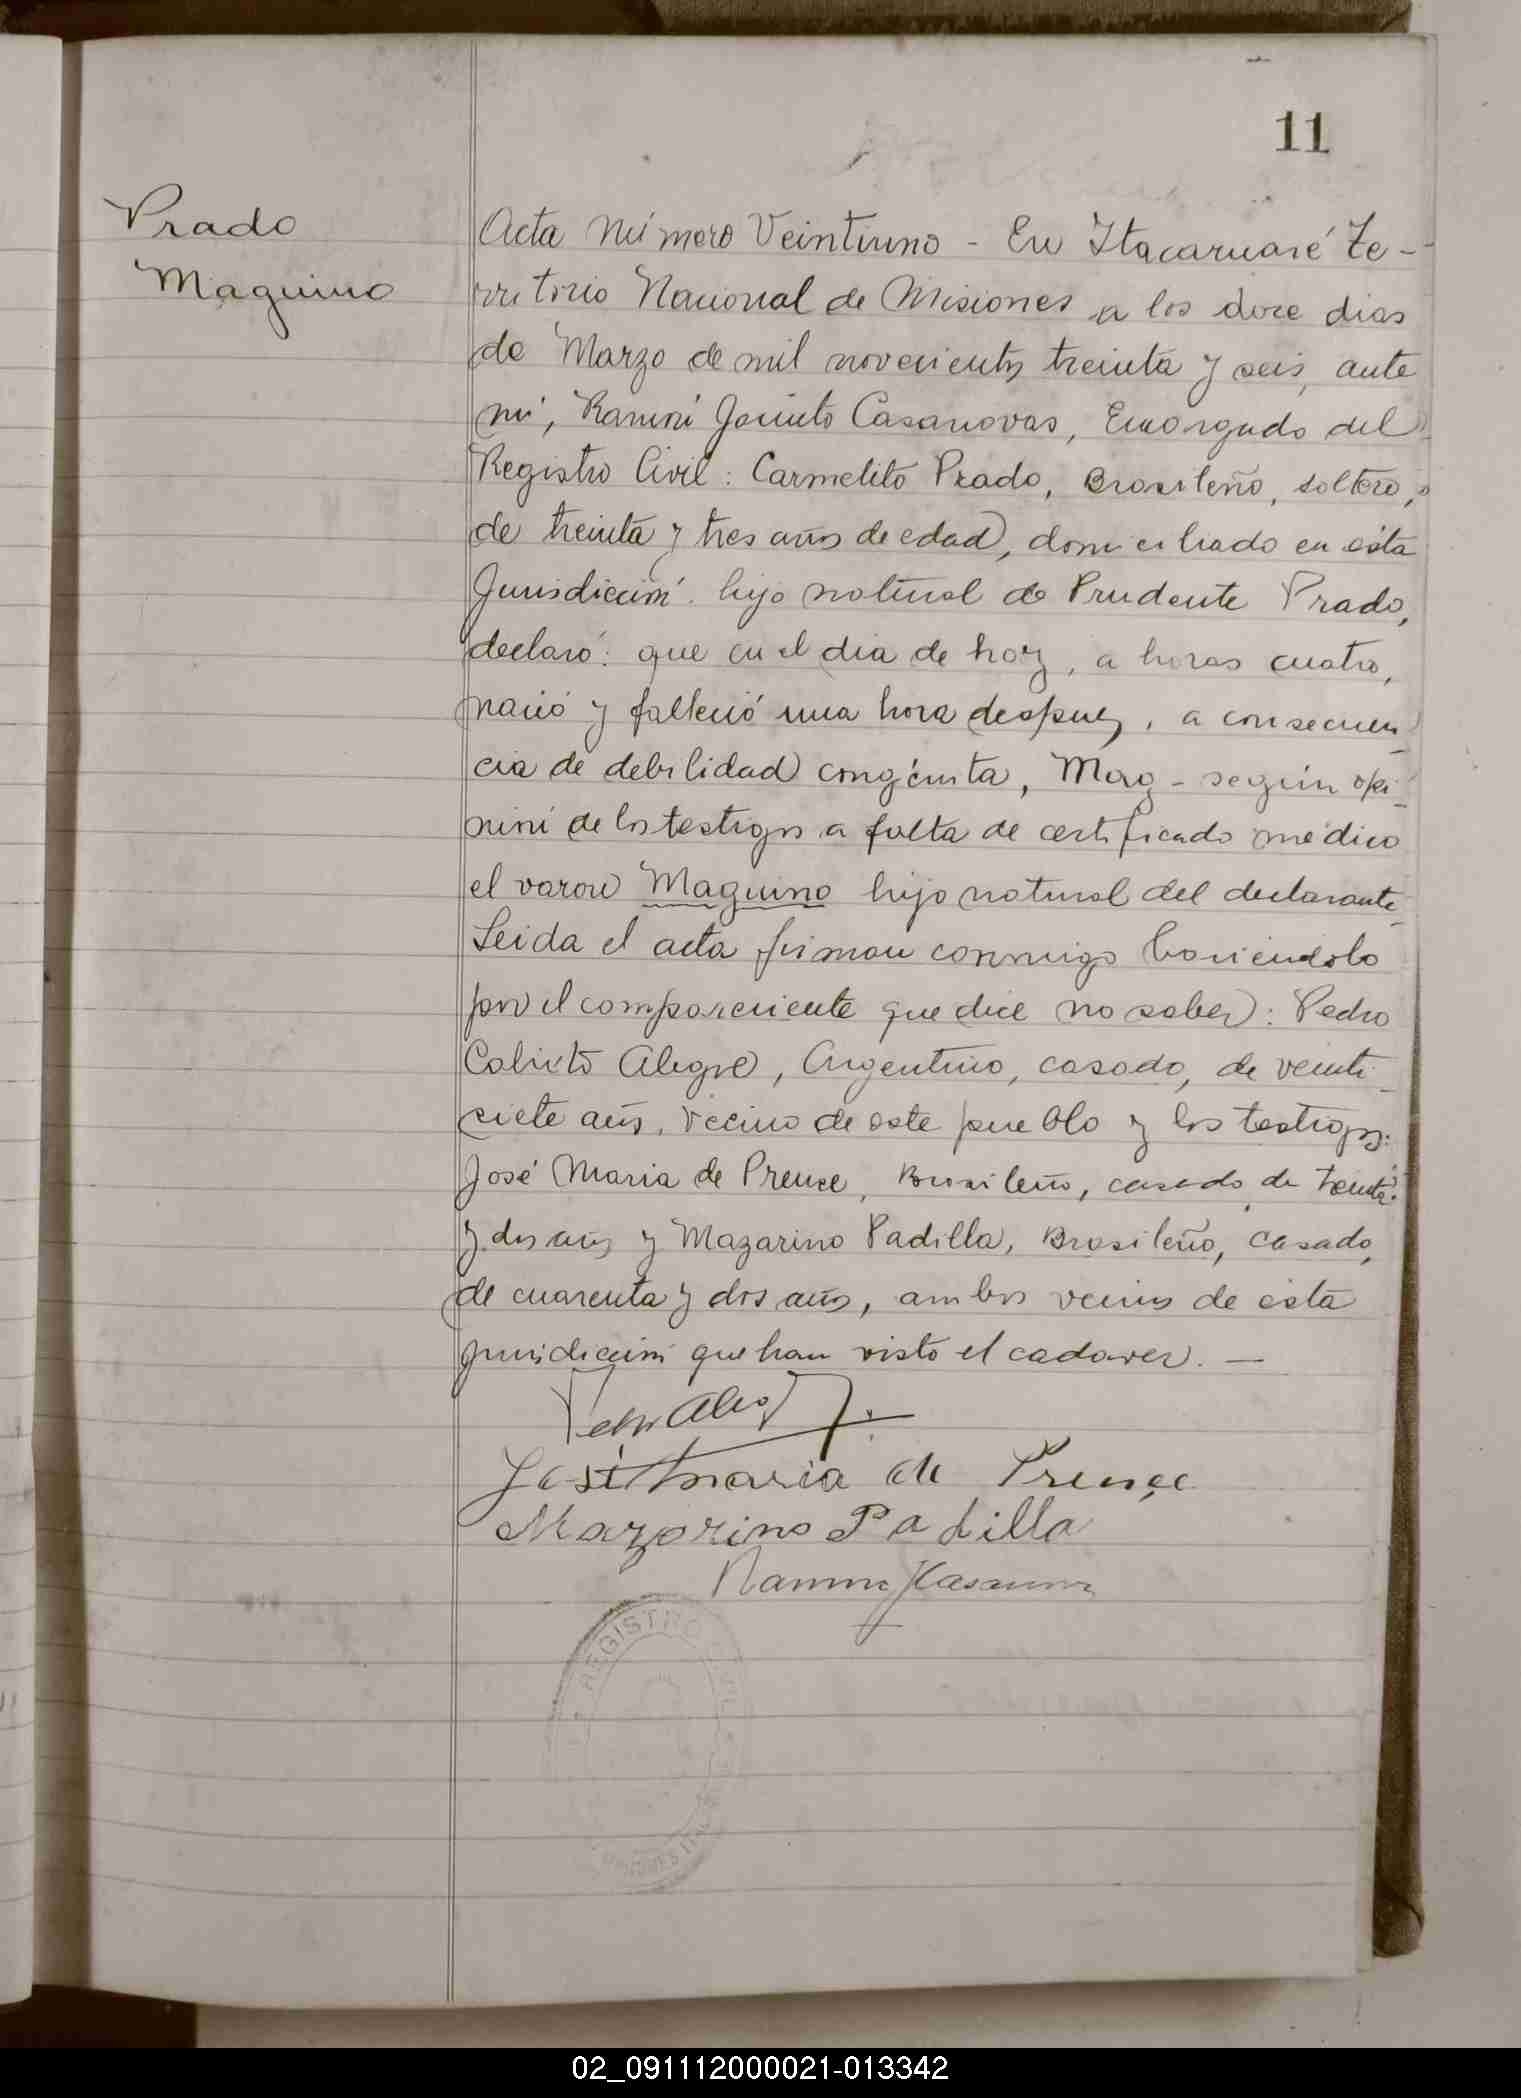 11
Prado
Maguino
Acta Número Veintiuno - En Itacaruaré Te-
rritorio Nacional de Misiones a los doce dias
de Marzo de mil novecientos treinta y seis, ante
mi, Ramón Jacinto Casanovas, Encargado del
Registro Civil: Carmelito Prado, Brasileño, soltero,
de treinta y tres años de edad, domiciliado en ésta
Jurisdicción. hijo natural de Prudente Prado,
declaró: que en el dia de hoy, a horas cuatro,
nació y falleció una hora despues, a consecuen-
cia de debilidad congénita, Mag - según opi-
nión de los testigos a falta de certificado médico
el varon Maguino hijo natural del declarante-
Leida el acta firman conmigo haciendolo
por el compareciente que dice no saber: Pedro
Calisto Alegre, Argentino, casado, de veinti-
siete años, vecino de este pueblo y los testigos:
José Maria de Prense, Brasileño, casado, de treinta
y dos años y Mazarino Padilla, Brasileño, casado,
de cuarenta y dos años, ambos vecinos de ésta
jurisdicción que han visto el cadaver. —
José maria de Prense
Mazarino Padilla
Ramon JCasanovas
REGISTRO CIVIL
02_091112000021-013342